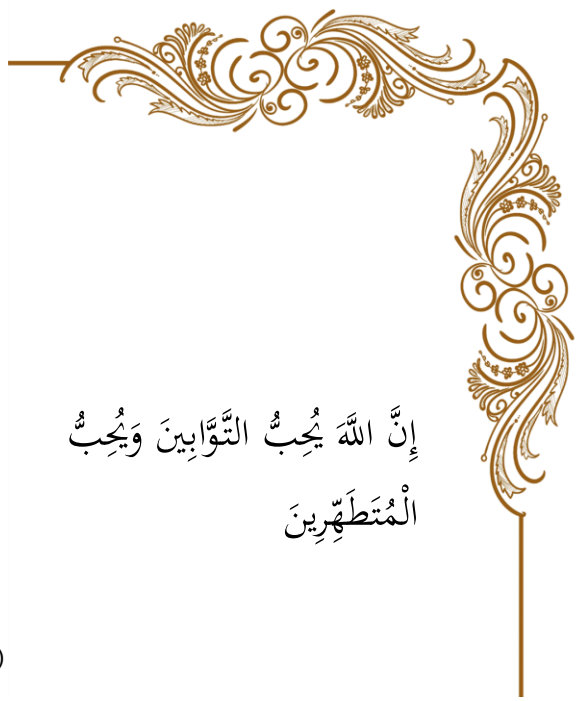 إِنَّ اللَّهَ يُحِبُّ التَّوَّابِينَ وَيُحِبُّ
الْمُتَطَهِّرِينَ
)